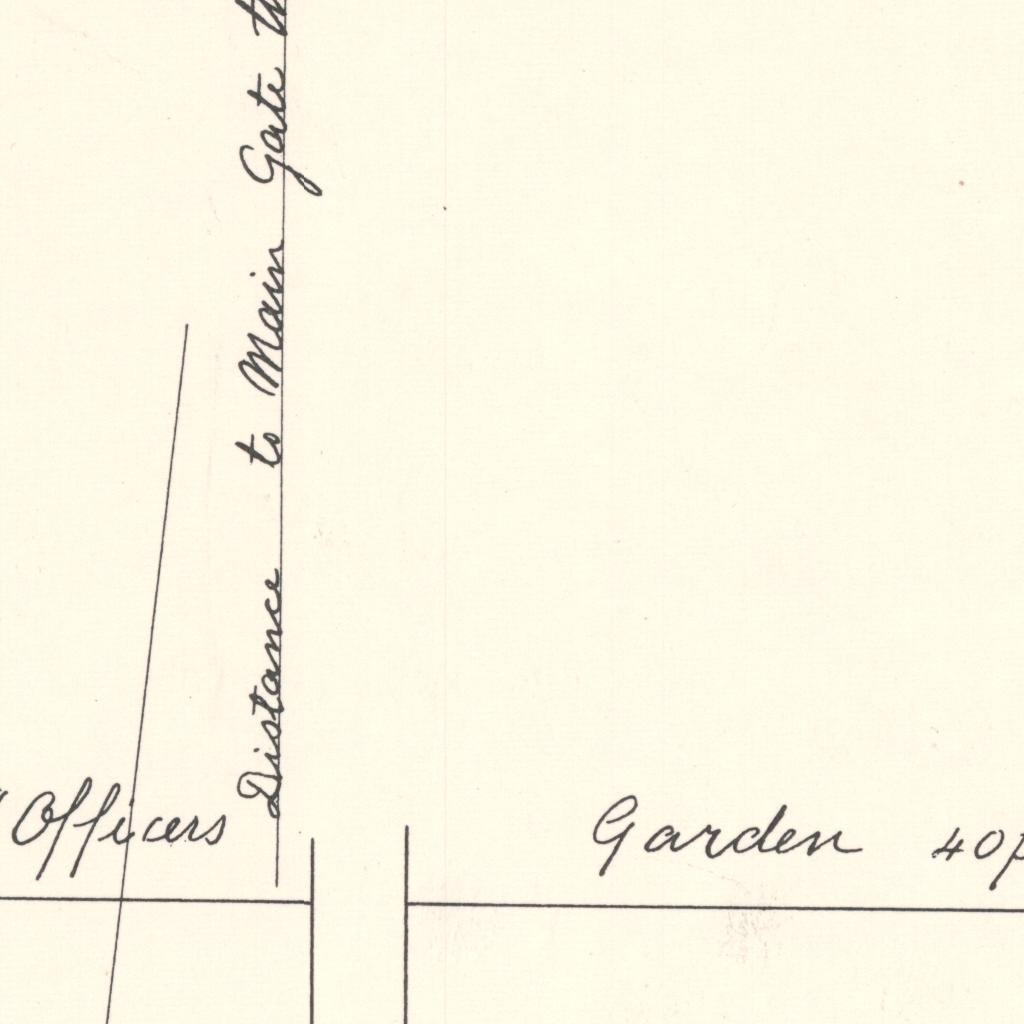 Distance to Main Gate
Officers
Garden 40